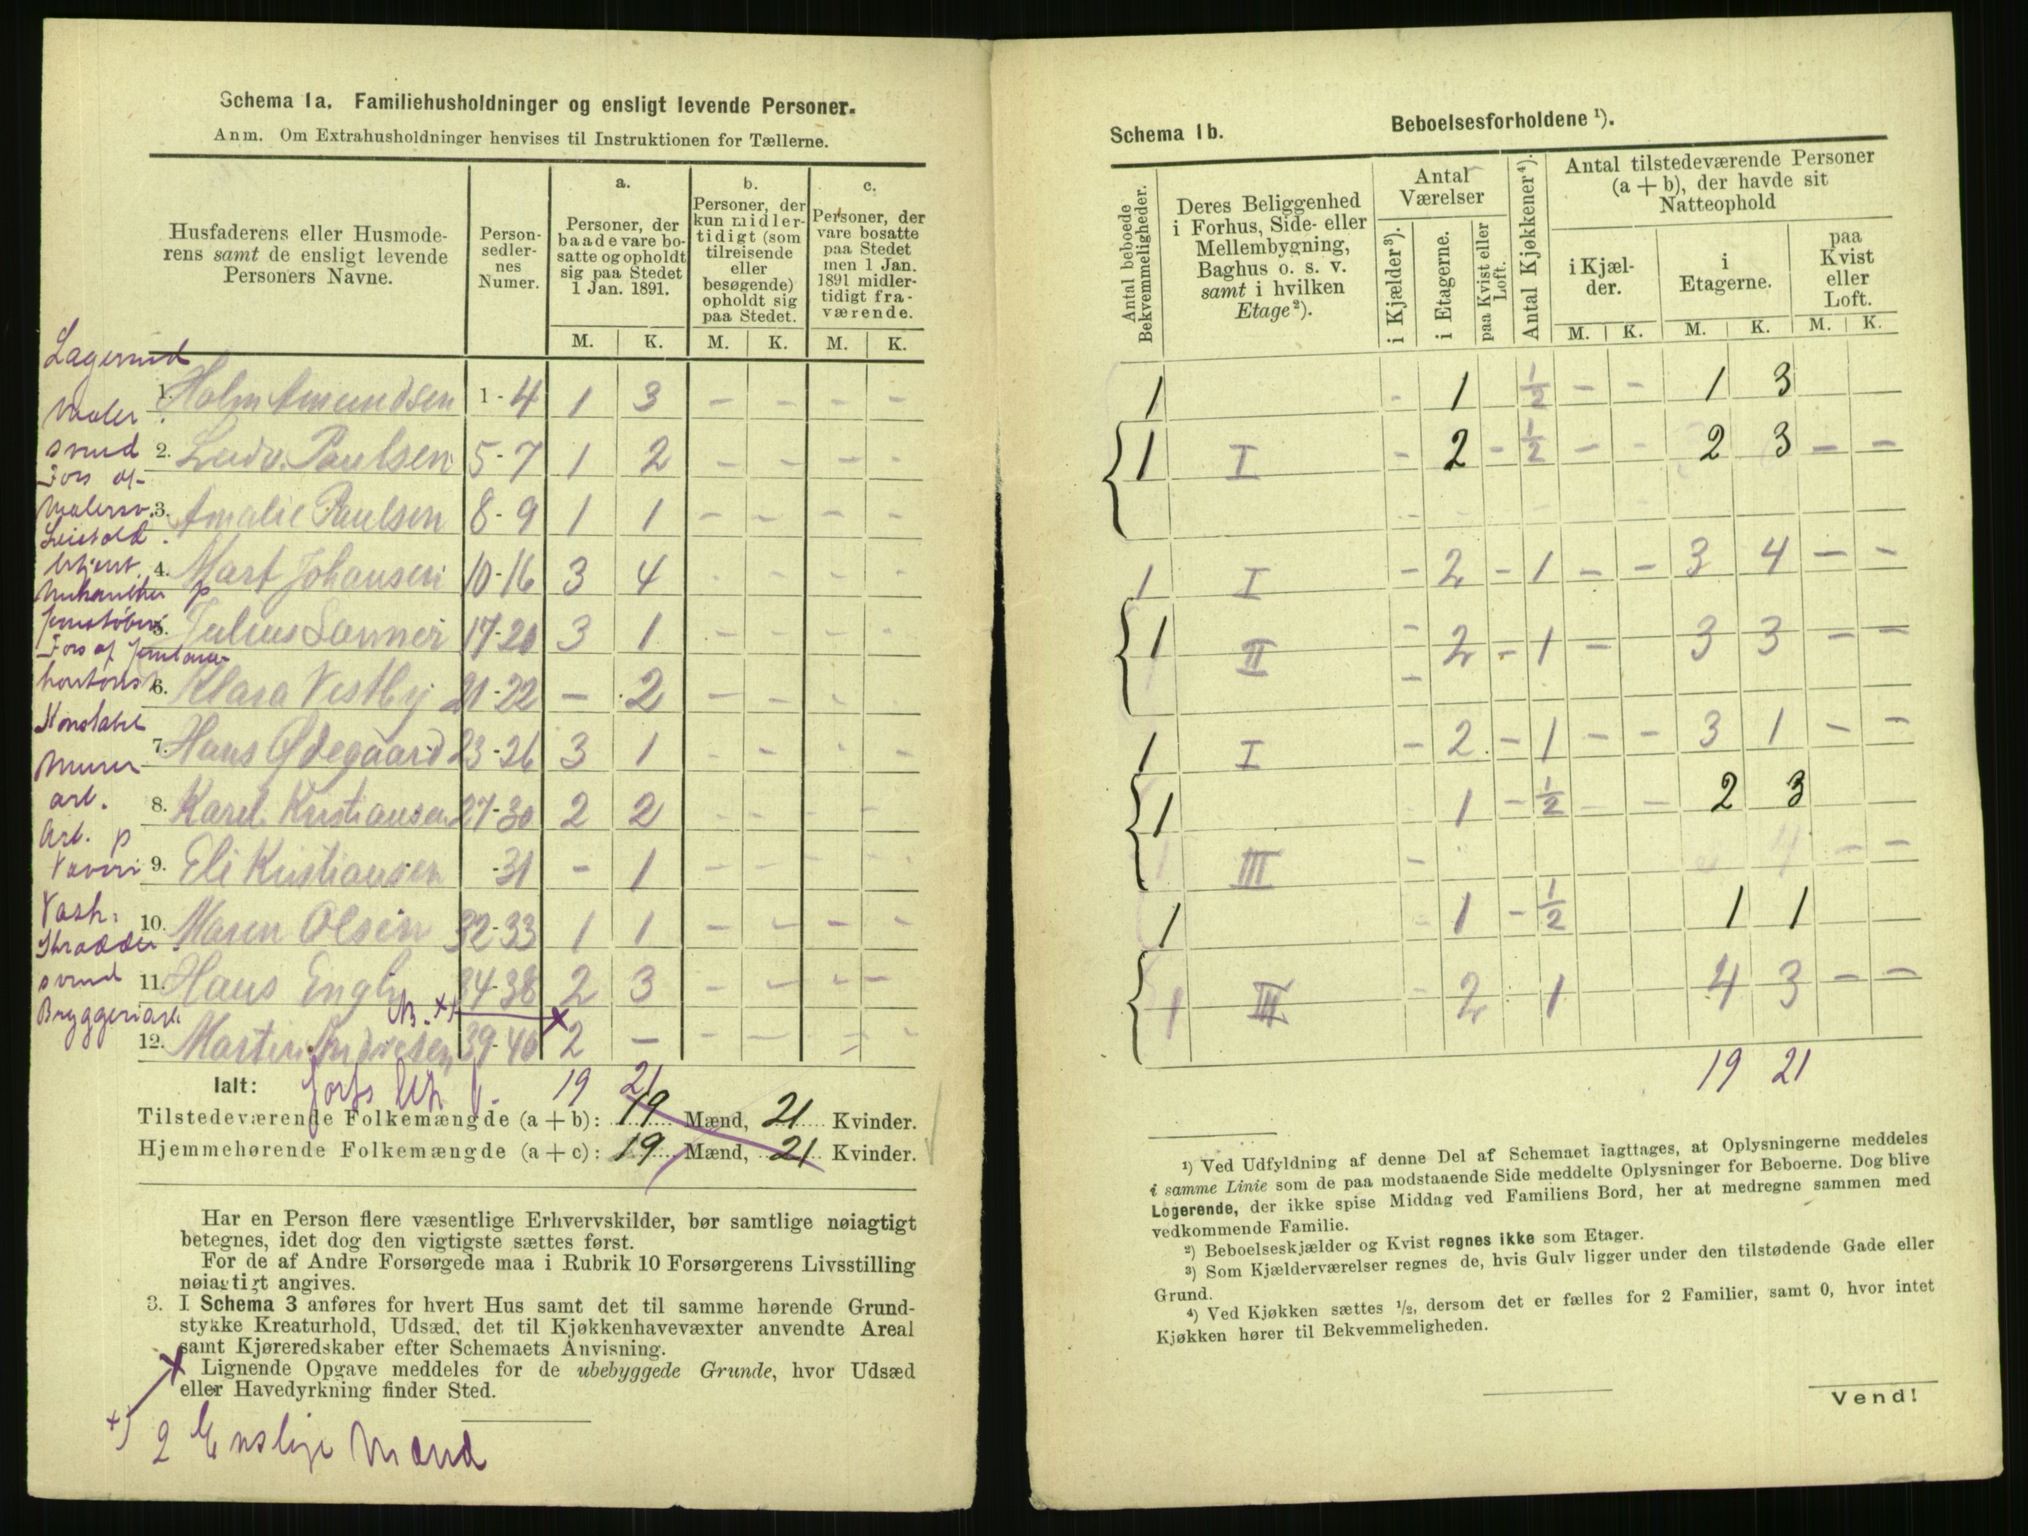 Schema 1a. Familiehusholdninger og ensligt levende Personer.
Anm. Om Extrahusholdninger henvises til Instruktionen for Tællerne.
Husfaderens eller Husmode-
rens samt de ensligt levende
Personers Navne.
Person-
sedler-
nes
Numer.
a.
Personer, der
baade vare bo-
satte og opholdt
sig paa Stedet
1 Jan. 1891.
b.
Personer, der
kun midler-
tidigt (som
tilreisende
eller
besøgende)
opholdt sig
paa Stedet.
c.
Personer, der
vare bosatte
paa Stedet
men 1 Jan.
1891 midler-
tidigt fra-
værende.
M. K. M. K. M. K.
1. Holm Amundsen 1-4 1 3 - - - -
Maler
2. Ludv. Paulsen 5-7 1 2 - - - -
svend
Fors af
3. Amalie Paulsen 8-9 1 1 - - - -
Malersv.
4. Mart Johansen 10-16 3 4 - - - -
5. Julius Sanner 17-20 3 1 - - - -
6. Klara Vestby 21-22 - 2 - - - -
Konstabel
7. Hans Ødegaard 23-26 3 1 - - - -
Murer
arb.
8. Karel Kristiansen 27-30 2 2 - - - -
Arb. p
9. Eli Kristiansen -31 - 1 - - - -
Væveri
Vask.
10. Maren Olsen 32-33 1 1 - - - -
Skrædder
svend
11. Hans Engh 34-38 2 3 - - - -
Bryggeriarb
12. Martin Andresen 39-40 2 - - - - -
Ialt: 19 21
Tilstedeværende Folkemængde (a + b): 19 Mænd, 21 Kvinder.
Hjemmehørende Folkemængde (a + c): 19 Mænd, 21 Kvinder.
Har en Person flere væsentlige Erhvervskilder, bør samtlige nøiagtigt
betegnes, idet dog den vigtigste sættes først.
For de af Andre Forsørgede maa i Rubrik 10 Forsørgerens Livsstilling
nøiagtigt angives.
3. I Schema 3 anføres for hvert Hus samt det til samme hørende Grund-
stykke Kreaturhold, Udsæd, det til Kjøkkenhavevæxter anvendte Areal
samt Kjøreredskaber efter Schemaets Anvisning.
Lignende Opgave meddeles for de ubebyggede Grunde, hvor Udsæd
eller Havedyrkning finder Sted.
+) 2 Enslige Mænd
Schema 1b. Beboelsesforholdene ¹).
Antal beboede
Bekvemmeligheder.
Deres Beliggenhed
i Forhus, Side- eller
Mellembygning,
Baghus o. s. v.
samt i hvilken
Etage ²).
Antal
Værelser
i Kjælder ³).
i Etagerne.
paa Kvist eller
Loft.
Antal Kjøkkener ⁴).
Antal tilstedeværende Personer
(a + b), der havde sit
Natteophold
i Kjæl-
der.
i
Etagerne.
paa
Kvist
eller
Loft.
M. K. M. K. M. K.
1 - 1 ½ - - 1 3
1 I - 2 - ½ - - 2 3 - -
1 I - 2 - 1 - - 3 4 - -
1 II - 2 - 1 - 3 3 - -
1 I - 2 - 1 - - 3 1 - -
1 1 - ½ - - 2 3
III - - -
1 - 1 - ½ 1 1
1 III - 2 1 4 3 - -
19 21
¹) Ved Udfyldning af denne Del af Schemaet iagttages, at Oplysningerne meddeles
i samme Linie som de paa modstaaende Side meddelte Oplysninger for Beboerne. Dog blive
Logerende, der ikke spise Middag ved Familiens Bord, her at medregne sammen med
vedkommende Familie.
²) Beboelseskjælder og Kvist regnes ikke som Etager.
³) Som Kjælderværelser regnes de, hvis Gulv ligger under den tilstødende Gade eller
Grund.
⁴) Ved Kjøkken sættes ½, dersom det er fælles for 2 Familier, samt 0, hvor intet
Kjøkken hører til Bekvemmeligheden.
Vend!